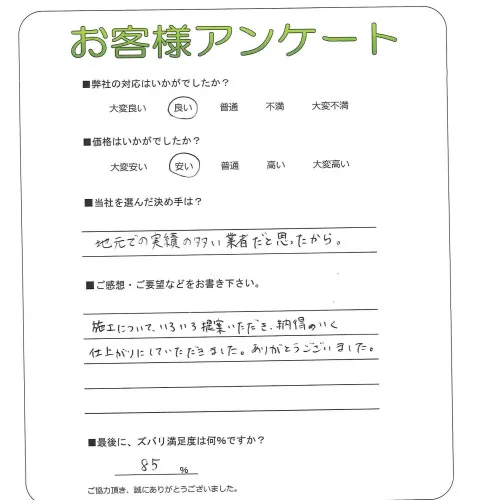 お客様アンケート
■弊社の対応はいかがでしたか？
大変良い 良い 普通 不満 大変不満
■価格はいかがでしたか？
大変安い 安い 普通 高い 大変高い
■当社を選んだ決め手は？
地元での実績の多い業者だと思ったから。
■ご感想・ご要望などをお書き下さい。
施工について、いろいろ提案いただき、納得のいく
仕上がりにしていただきました。ありがとうございました。
■最後に、ズバリ満足度は何%ですか？
85 %
ご協力頂き、誠にありがとうございました。